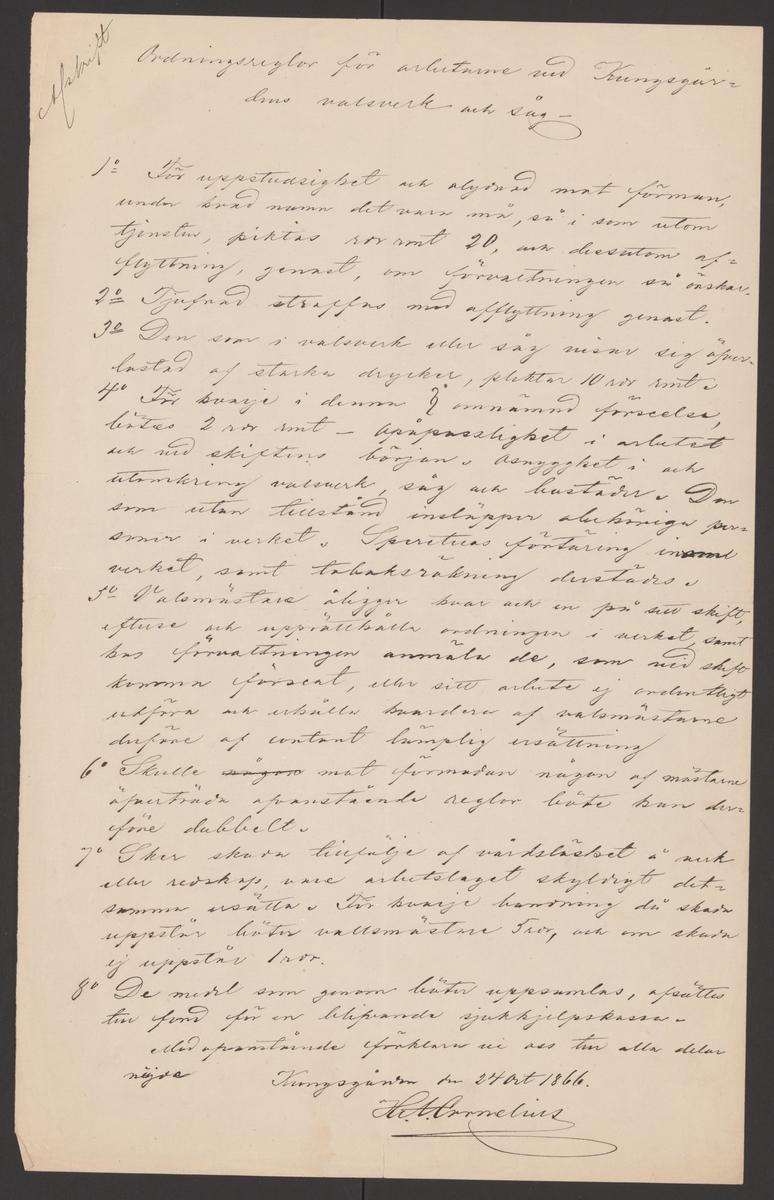 Afskrift
Ordningsreglor för arbetarne vid Kungsgår=
dens valsverk och såg
1o För uppstudsighet och olydnad mot förmän,
under hvad namn det vara må, så i som utom
tjensten, pliktas rdr rmt 20, och dessutom af=
flyttning, genast, om förvaltningen så önskar.
2o Tjufnad straffas med afflyttning genast.
3o Den som i valsverk eller såg visar sig öfver=
lastad af starka drycker, pliktar 10 rdr rmt.
4o För hvarje i denna § omnämnd förseelse,
bötas 2 rdr rmt – Opåpasslighet i arbetet
och vid skiftens början. Osnygghet i och
utomkring valsverk, såg och bostäder. Den
som utan tillstånd insläpper obehöriga per=
soner i verket. Spirituosas förtäring inom
verket, samt tobaksrökning derstädes.
5o Valsmästare åligger hvar och en på sitt skift,
efterse och upprätthålla ordningen i verket, samt
hos förvaltningen anmäla de, som vid skift
komma förseat, eller sitt arbete ej ordentligt
utföra och erhålla hvardera af valsmästarne
derföre af contant lämplig ersättning
6o Skulle någon mot förmodan någon af mästarne
öfverträda ofvanstående reglor böte han der=
före dubbelt.
7o Sker skada tillfölje af vårdslöshet å verk
eller redskap, vare arbetslaget skyldigt det=
samma ersätta. För hvarje bandning då skada
uppstår böter valsmästare 5 rdr, och om skada
ej uppstår 1 rdr.
8o De medel som genom böter uppsamlas, afsättes
till fond för en blifvande sjukhjelpskassa.
Med ofvanstående förklara vi oss till alla delar
nöjde
Kungsgården den 24 Oct 1866.
Cornelius